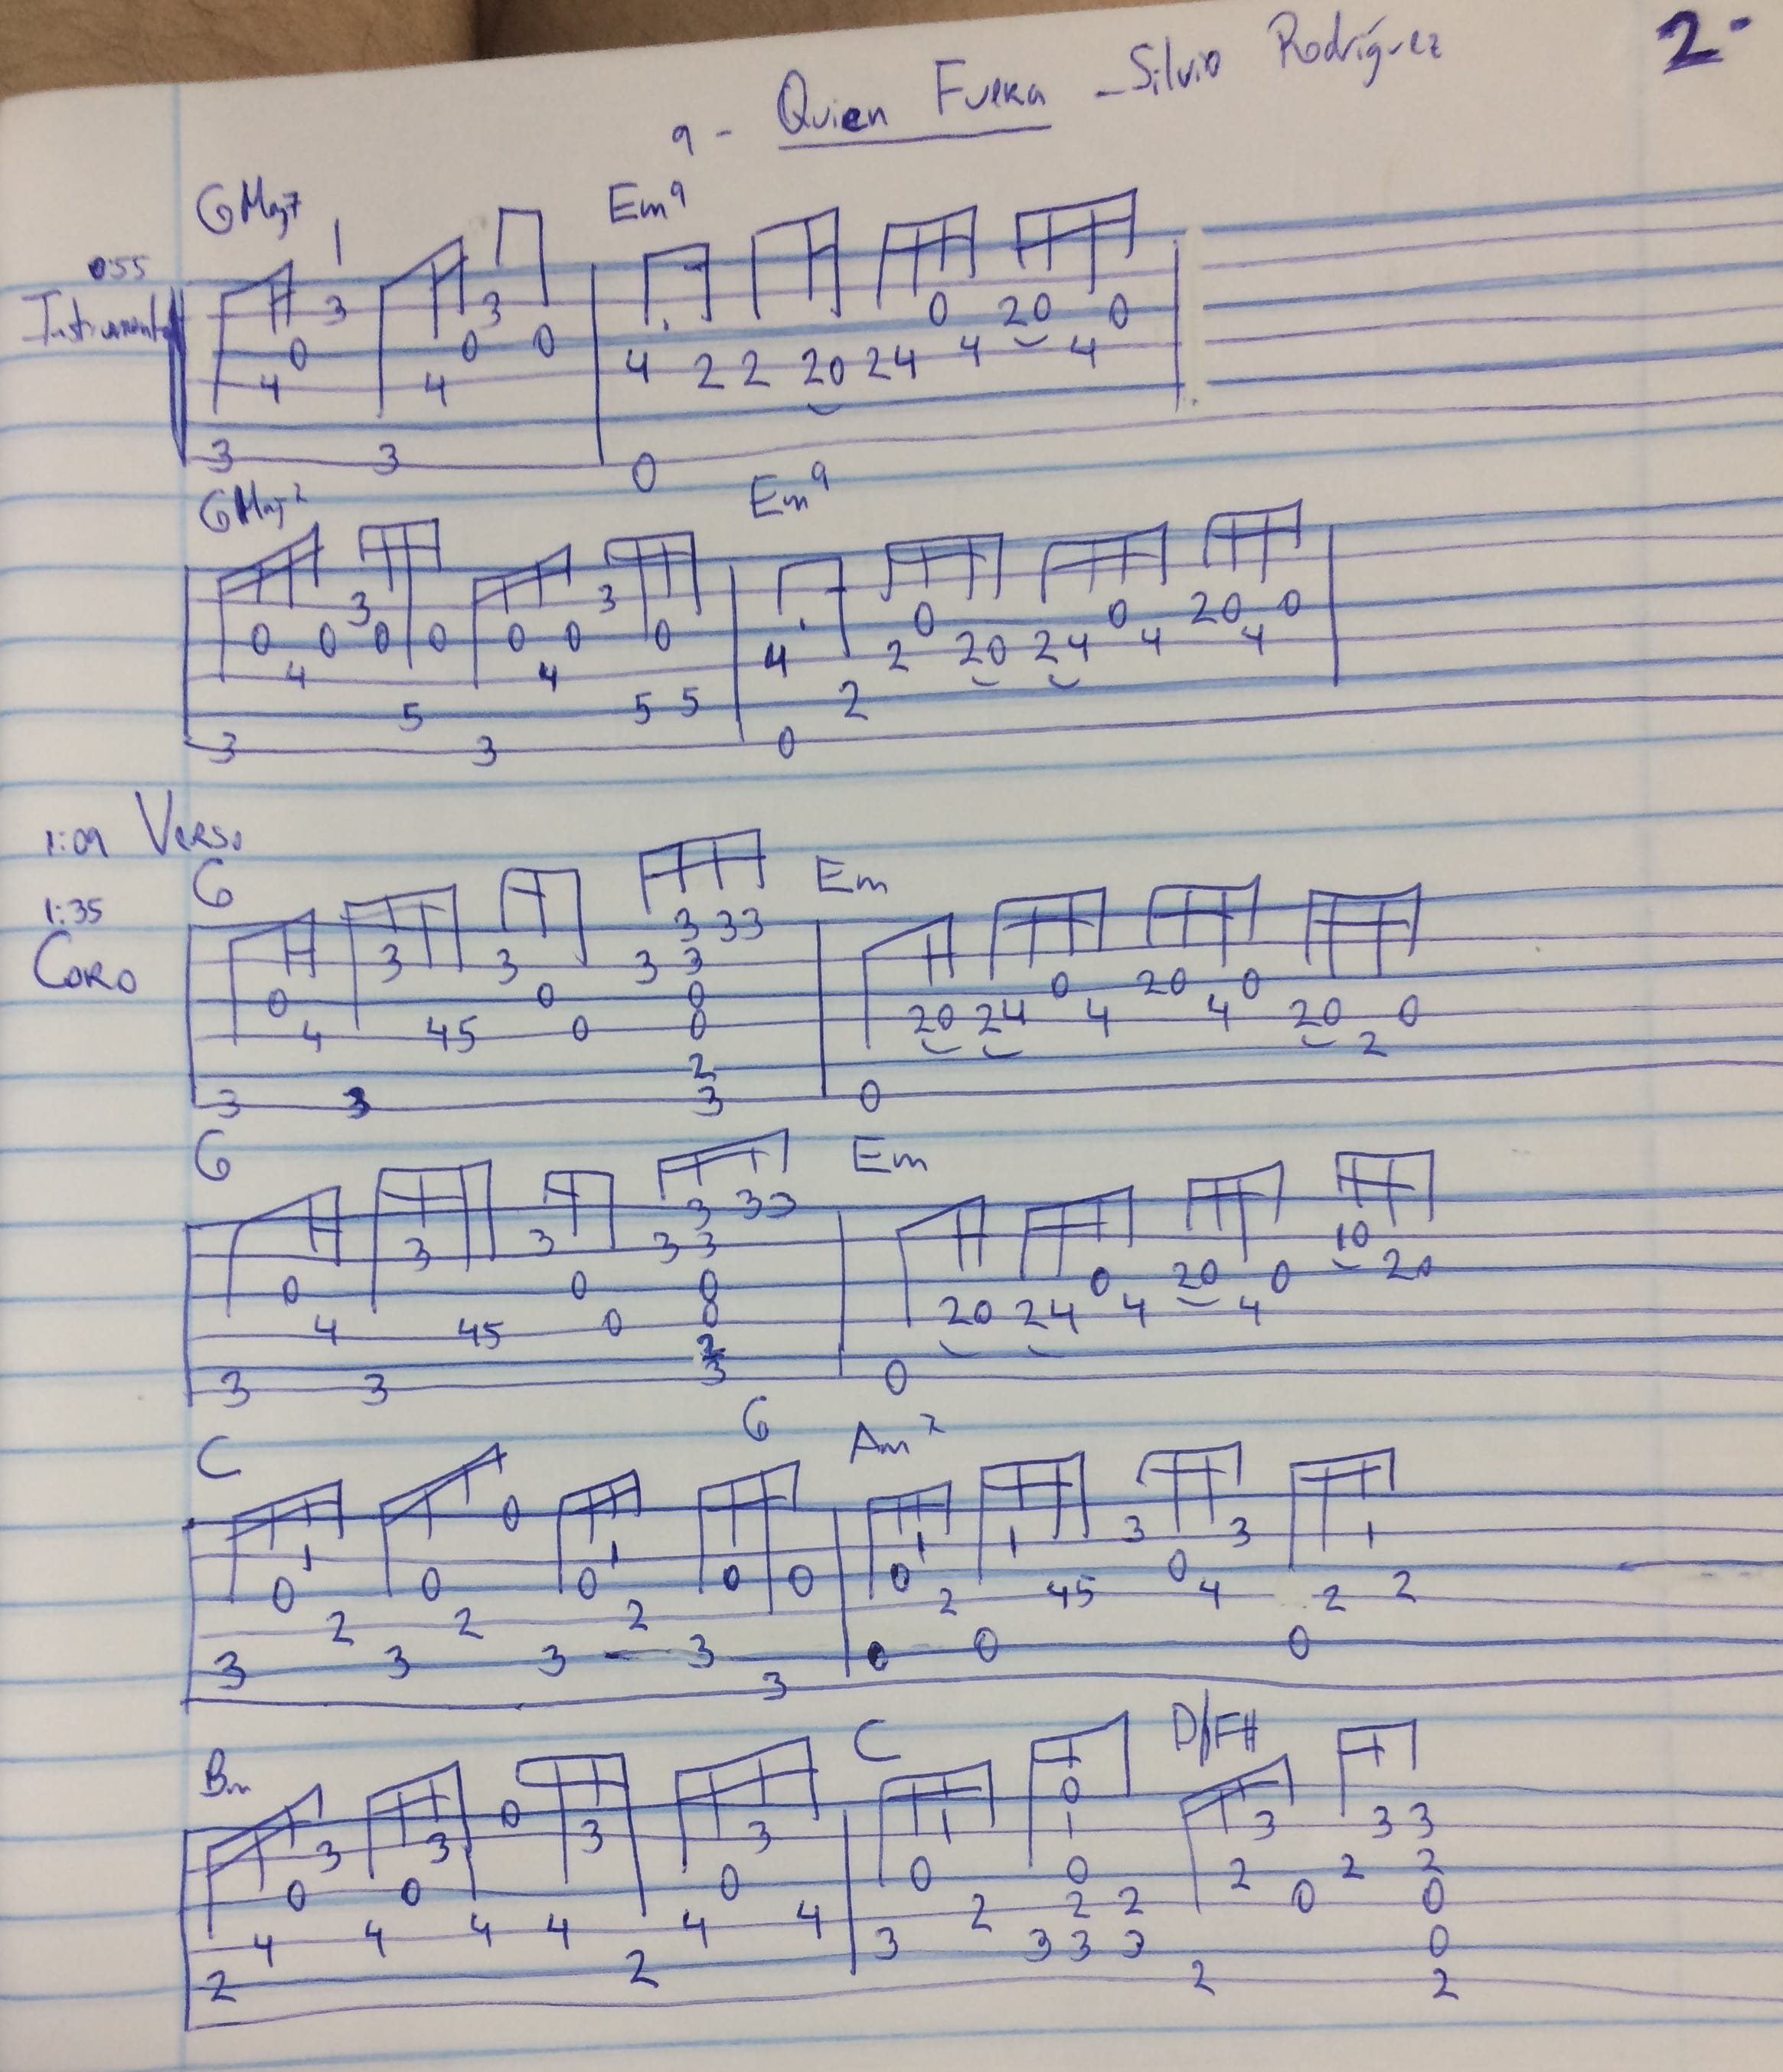 2-
9- Quien Fuera - Silvio Rodríguez
GMaj7 Em9
0:55
Instrumental
3 3 0 20 0
0 0 0
4 4 4 2 2 20 24 4 4
3 3 0
GMaj7 Em9
3 3
0 0 0 0 0 0 0 0 0 20 0
4 4 4 2 20 24 4 4
5 5 5 2
3 3 0
1:09 Verso
G Em
1:35
Coro
3 33
3 3 3 3
0 0 0 0 20 0
4 45 0 0 20 24 4 4 20 0
2 2
3 3 3 0
G Em
3 33
3 3 3 3 10
0 0 0 0 20 0 20
4 45 0 0 20 24 4 4
2
3 3 3 0
C G Am7
0
1 1 1 1 3 3 1
0 0 0 0 0 0 0
2 2 2 2 45 4 2 2
3 3 3 - 3 0 0 0
3
Bm C D/F#
0 0
3 3 3 3 1 1 3 3 3
0 0 0 0 0 2 2 2
4 4 4 4 4 4 2 2 2 0 0
2 2 3 3 3 3 0
2 2